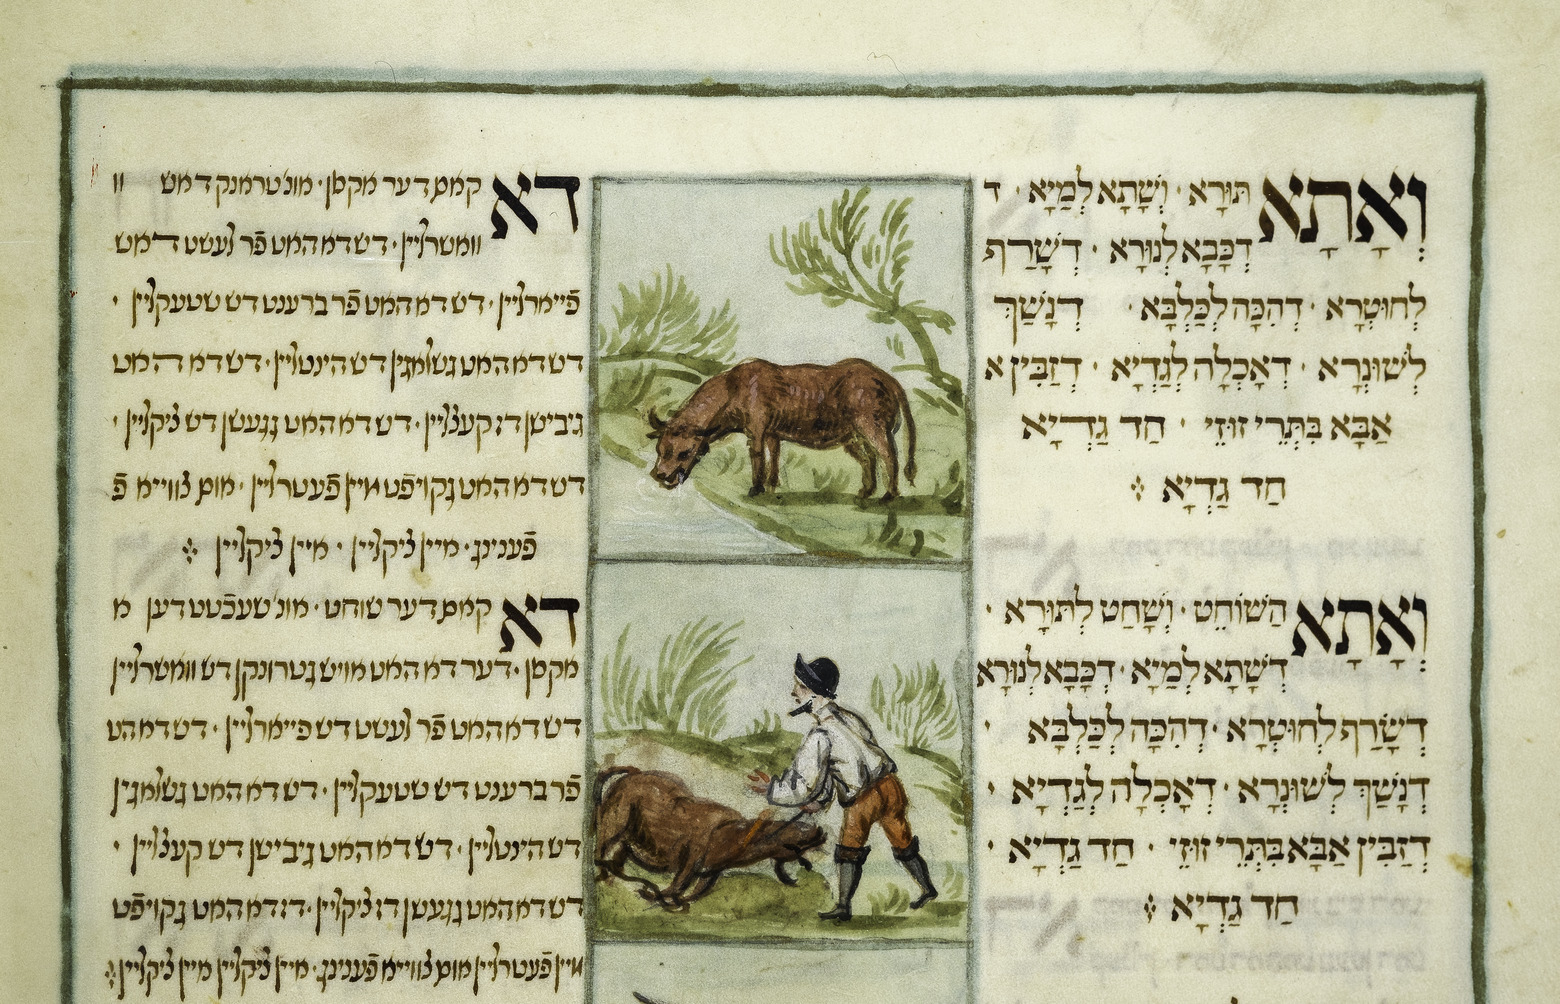 וְאָתָא תּוֹרָא · וְשָׁתָא לְמַיָא · ד
דְכָבָא לְנוּרָא · דְשָׂרַף
לְחוּטְרָא · דְהִכָּה לְכַלְבָּא · דְנָשַׁךְ
לְשׁוּנְרָא · דְאָכְלָה לְגַדְיָא · דְזַבִּין א
אַבָּא בִּתְּרֵי זוּזֵי · חַד גַדְיָא
חַד גַדְיָא
וְאָתָא הַשׁוֹחֵט · וְשָׁחַט לְתוֹרָא ·
דְשָׁתָא לְמַיָא · דְכָבָא לְנוּרָא
דְשָׂרַף לְחוּטְרָא · דְהִכָּה לְכַלְבָּא ·
דְנָשַׁךְ לְשׁוּנְרָא · דְאָכְלָה לְגַדְיָא ·
דְזַבִּין אַבָּא בִּתְרֵי זוּזֵי · חַד גַדְיָא ·
חַד גַדְיָא
דא קאם דער אקסן · אונ' טראנק דאש וו
וואשרליין · דש דא האט פֿר לעשט דאש
פֿייארליין · דש דא האט פֿר ברענט דש שטעקליין ·
דש דא האט גשלאגין דש הינטליין · דש דא האט
גיביסן דז קעצליין · דש דא האט געסן דש ציקליין ·
דש דא האט גקויפֿט מיין פֿעטרליין · אום צווייא פֿ
פֿענינג · איין ציקליין · איין ציקליין
דא קאם דער שוחט · אונ' שעכט דען א
אקסן · דער דא האט אויש גטרונקן דש וואשרליין
דש דא האט פֿר לעשט דש פייארליין · דש דא הט
פֿר ברענט דש שטעקליין · דש דא האט גשלאגין
דש הינטליין · דש דא האט גיביסן דש קעצליין ·
דש דא האט געסן דז ציקליין · דז דא האט גקויפֿט
מיין פֿעטרליין אום צווייא פֿענינג · איין ציקליין איין ציקליין